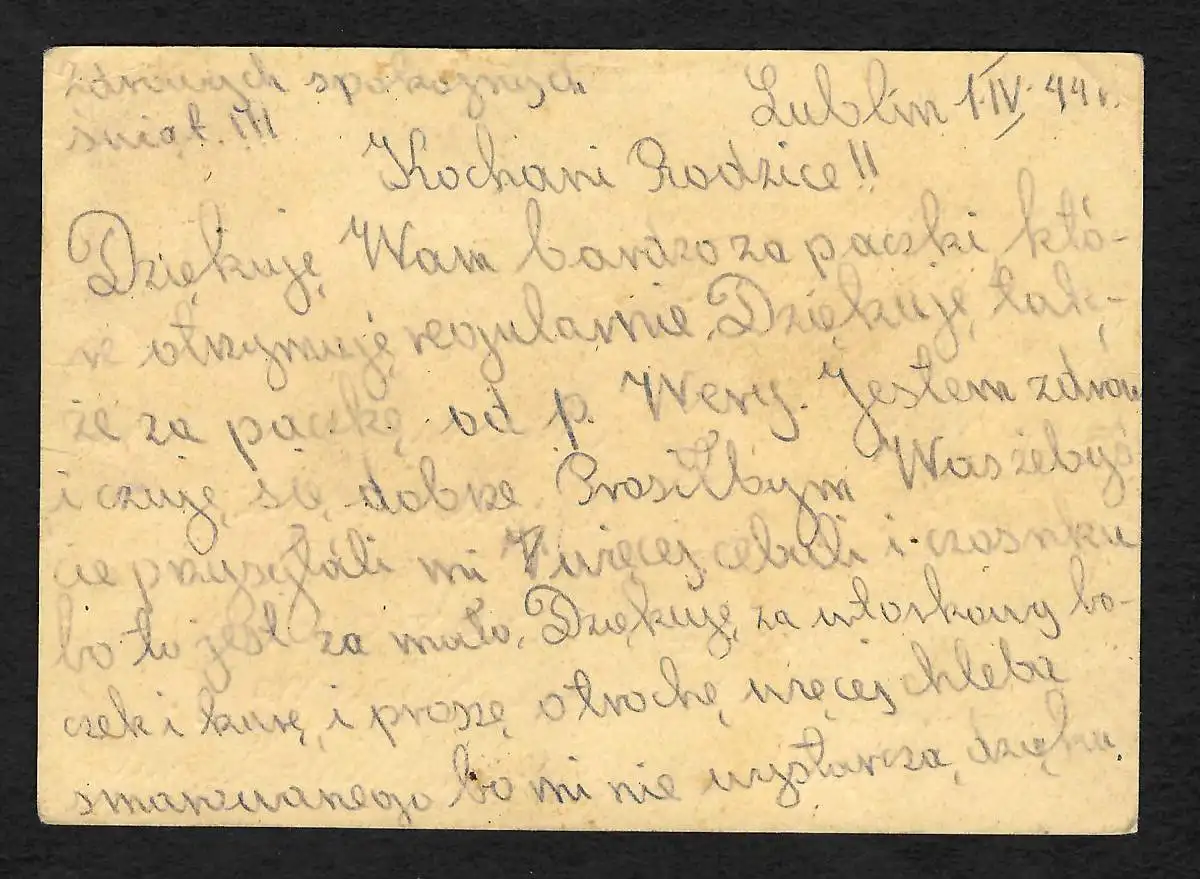 Zdrowych spokojnych
świąt. !!!
Lublin 1.IV. 44r.
Kochani Rodzice!!
Dziękuję Wam bardzo za paczki, któ-
re otrzymuję regularnie. Dziękuję, tak-
że za paczkę od p. Wery. Jestem zdrów
i czuję się dobrze. Prosiłbym Was żebyś
cie przysyłali mi więcej cebuli i czosnku
bo to jest za mało. Dziękuję za włoskowy bo-
czek i kurę, i proszę o trochę więcej chleba
smarowanego bo mi nie wystarcza, dzięku